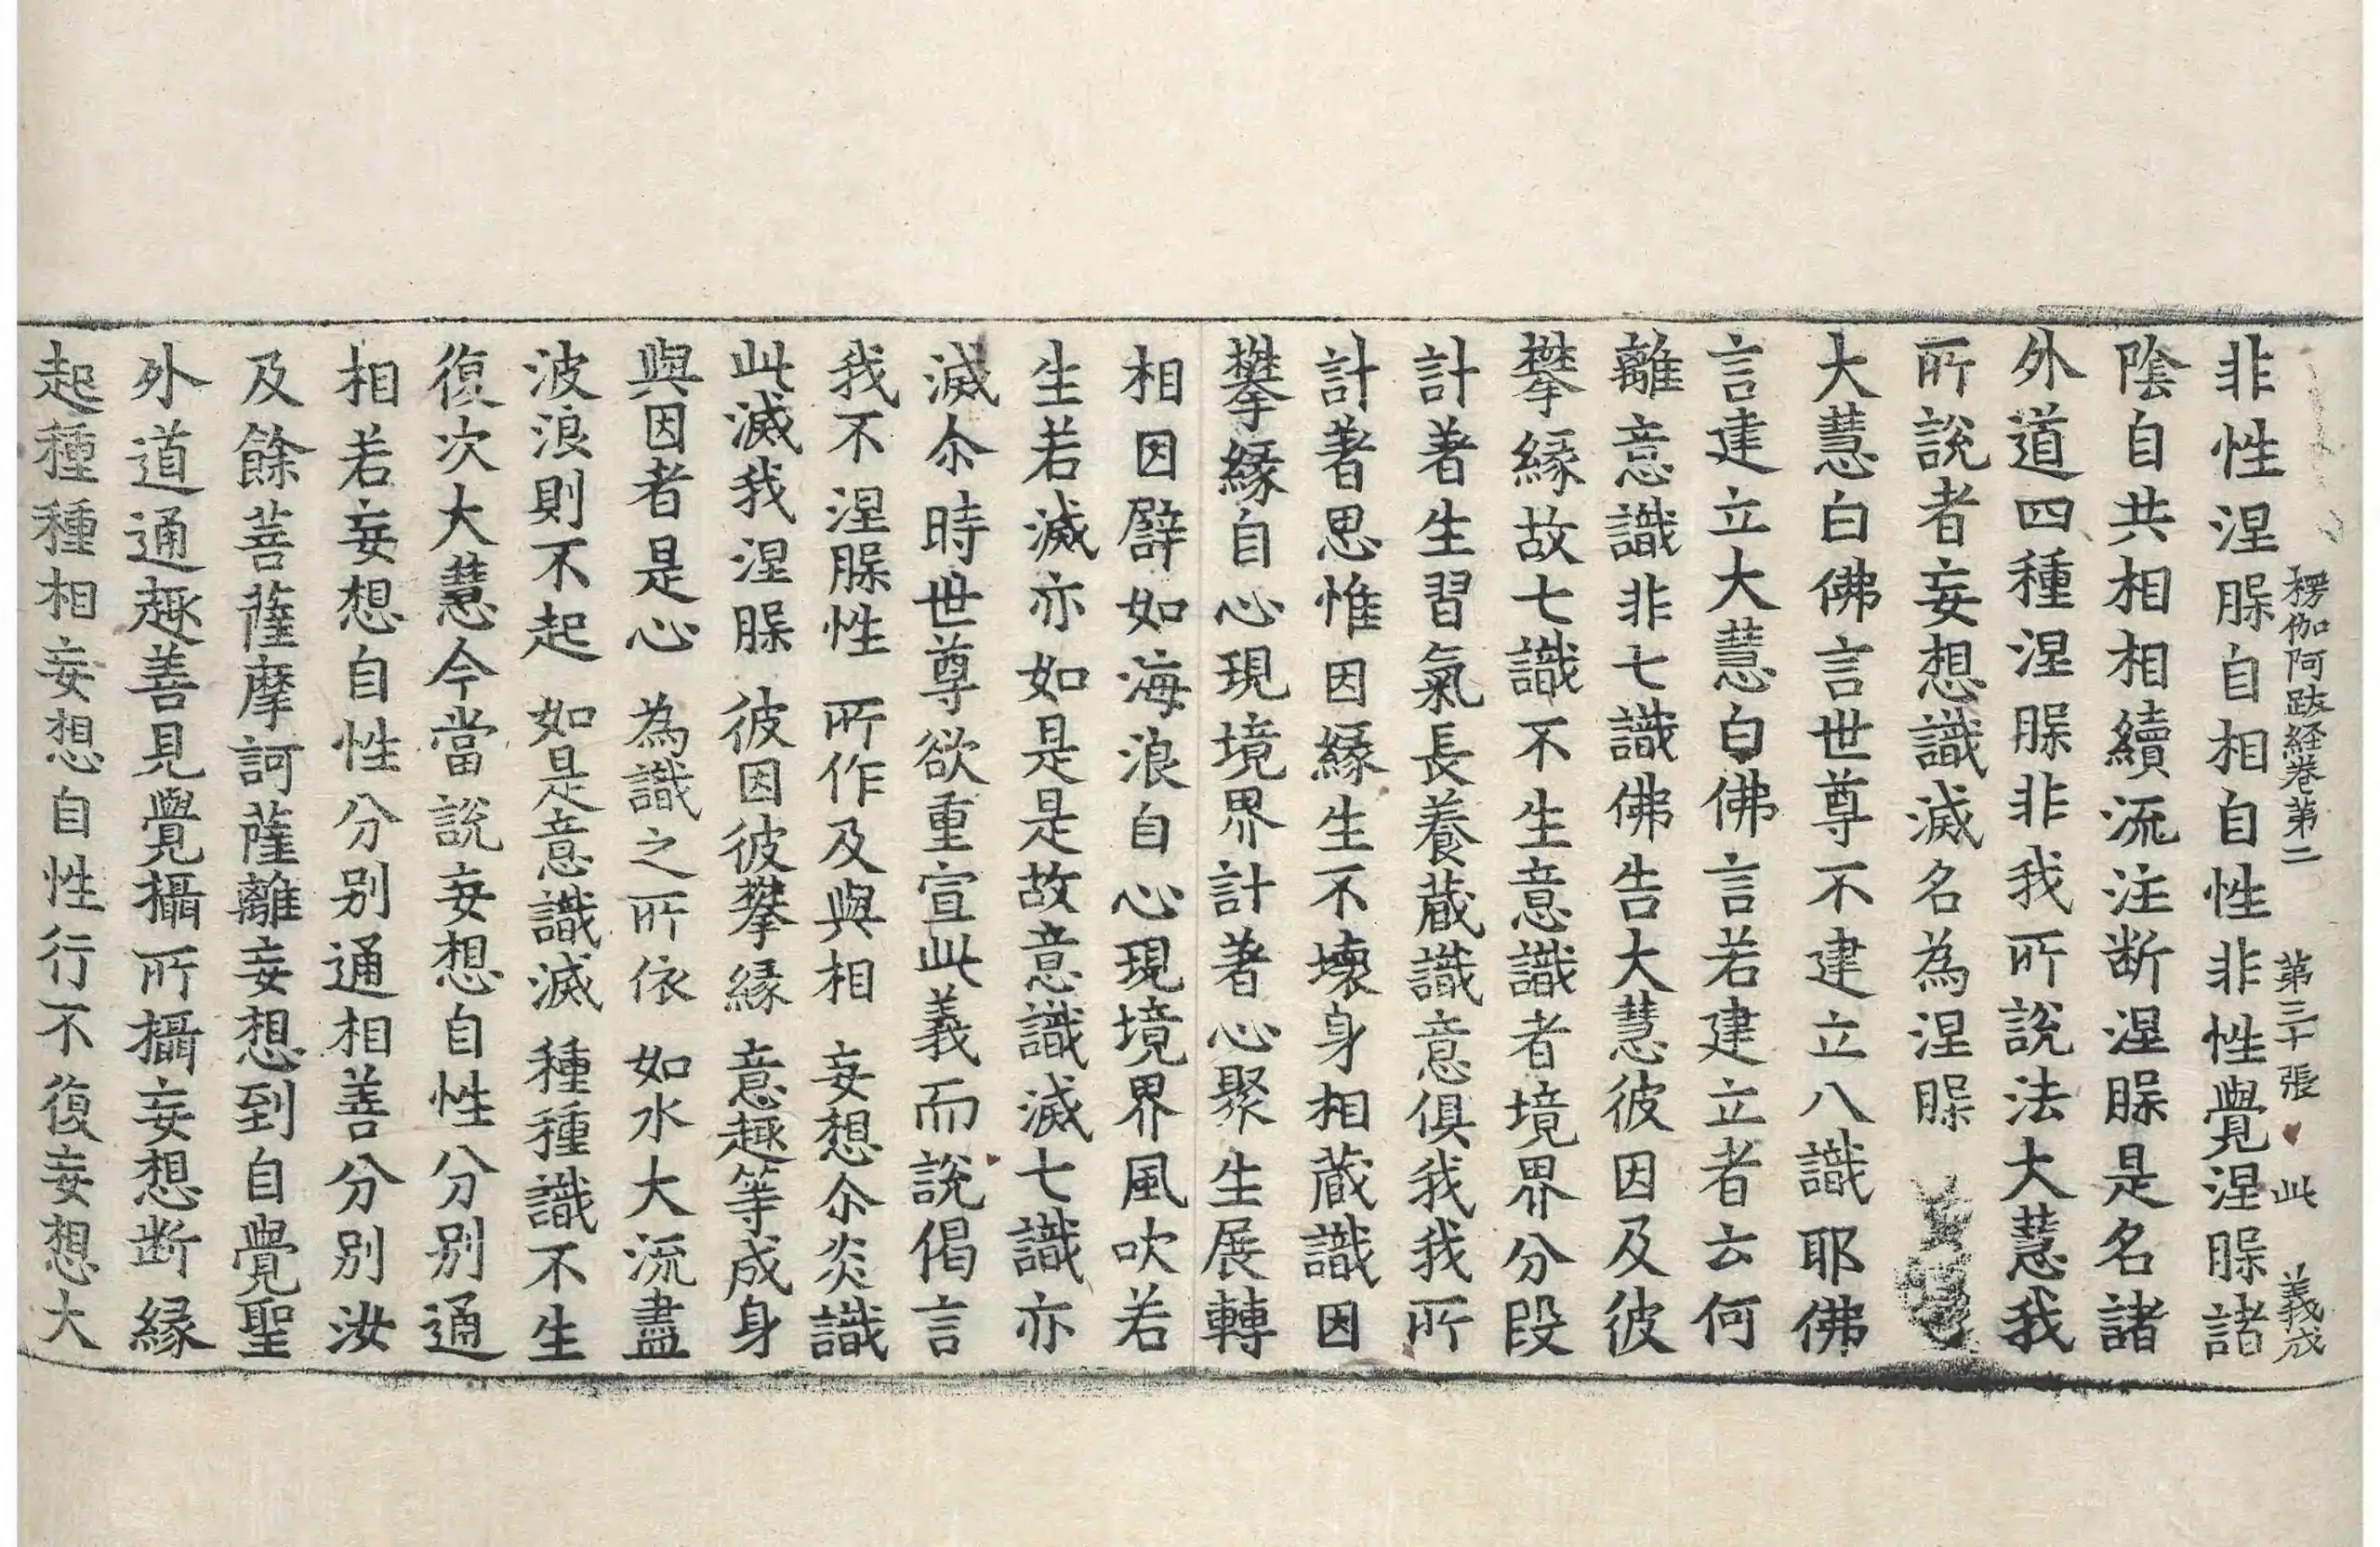 楞伽阿跋経卷第二　第三十張　此　義成
非性涅脲自相自性非性覺涅脲諸
陰自共相相續流注断涅脲是名諸
外道四種涅脲非我所說法大慧我
所說者妄想識滅名為涅脲
大慧白佛言世尊不建立八識耶佛
言建立大慧白佛言若建立者云何
離意識非七識佛告大慧彼因及彼
攀縁故七識不生意識者境界分段
計著生習氣長養蔵識意俱我我所
計著思惟因縁生不壞身相蔵識因
攀縁自心現境界計著心聚生展轉
相因譬如海浪自心現境界風吹若
生若滅亦如是是故意識滅七識亦
滅尒時世尊欲重宣此義而說偈言
我不涅脲性　所作及與相　妄想尒炎識
此滅我涅脲　彼因彼攀縁　意趣等成身
與因者是心　為識之所依　如水大流盡
波浪則不起　如是意識滅　種種識不生
復次大慧今當說妄想自性分別通
相若妄想自性分别通相善分別汝
及餘菩薩摩訶薩離妄想到自覺聖
外道通趣善見覺攝所攝妄想断縁
起種種相妄想自性行不復妄想大